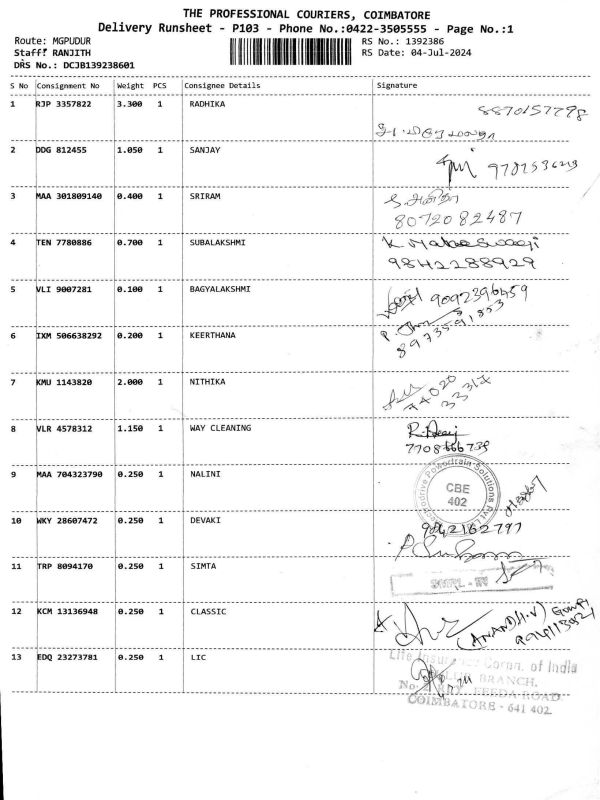 THE PROFESSIONAL COURIERS, COIMBATORE
Delivery Runsheet - P103 - Phone No.:0422-3505555 - Page No.:1
Route: MGPUDUR RS No.: 1392386
Staff: RANJITH RS Date: 04-Jul-2024
DRS No.: DCJB139238601
S No Consignment No Weight PCS Consignee Details Signature
1 RJP 3357822 3.300 1 RADHIKA 8870157798
2 DDG 812455 1.050 1 SANJAY
3 MAA 301809140 0.400 1 SRIRAM
8072082487
4 TEN 7780886 0.700 1 SUBALAKSHMI K.
9842288929
5 VLI 9007281 0.100 1 BAGYALAKSHMI 9092396459
6 IXM 506638292 0.200 1 KEERTHANA 8973591853
7 KMU 1143820 2.000 1 NITHIKA 74020
33317
8 VLR 4578312 1.150 1 WAY CLEANING
7708666739
9 MAA 704323790 0.250 1 NALINI CBE
402
10 WKY 28607472 0.250 1 DEVAKI 9842162797
11 TRP 8094170 0.250 1 SIMTA
12 KCM 13136948 0.250 1 CLASSIC
(ANANDH.V)
13 EDQ 23273781 0.250 1 LIC Life Insurance Corpn. of India
BRANCH.
No. ROAD.
COIMBATORE - 641 402